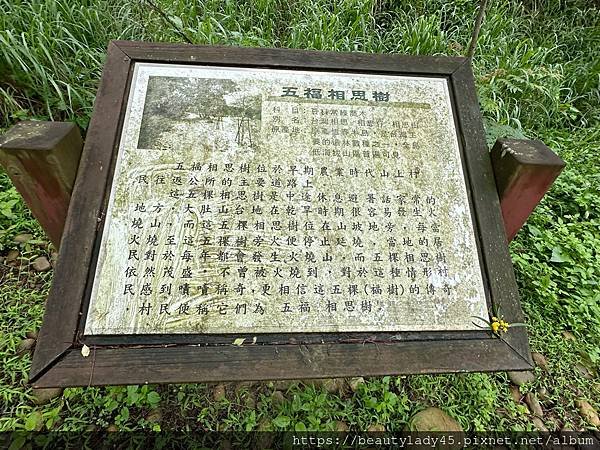 五福相思樹
科 名：含羞草亞科
別 名：台灣相思、相思仔、相思
低海拔山區普遍可見
五福相思樹位於早期農業時代山上村
民往返公所的主要道路上
這五棵相思樹是中途休息遊著話家常的
地方，大肚山台地在乾旱時期很容易發生火
燒山，而這五棵樹位在山坡地旁，每當
火燒至五棵樹旁火便停止延燒，當地的居
民對於這五年都會發生火燒山，而五棵相思樹
依然茂盛，不曾被火燒到，對於這種情形村
民感到嘖嘖稱奇，更相信這五棵(福樹)的傳奇
，村民便稱它們為 五福 相思樹。
https://beautylady45.pixnet.net/album